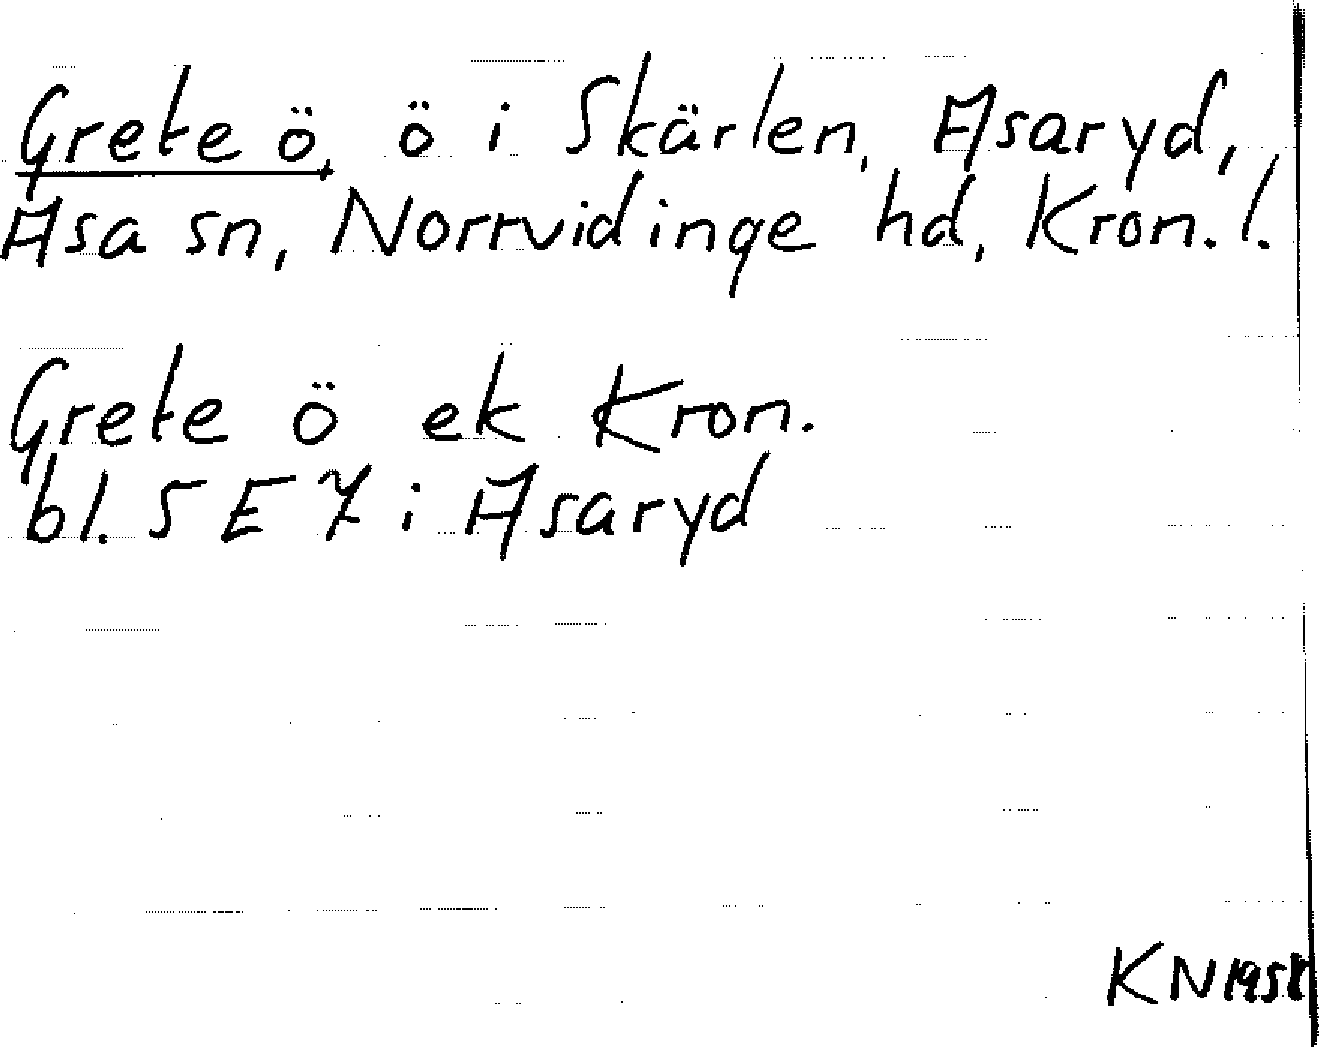 Grete ö, ö i Skärlen, Asaryd,
Asa sn, Norrvidinge hd, Kron. l.
Grete ö ek Kron.
bl. 5 E 7 i Asaryd
KN 1958